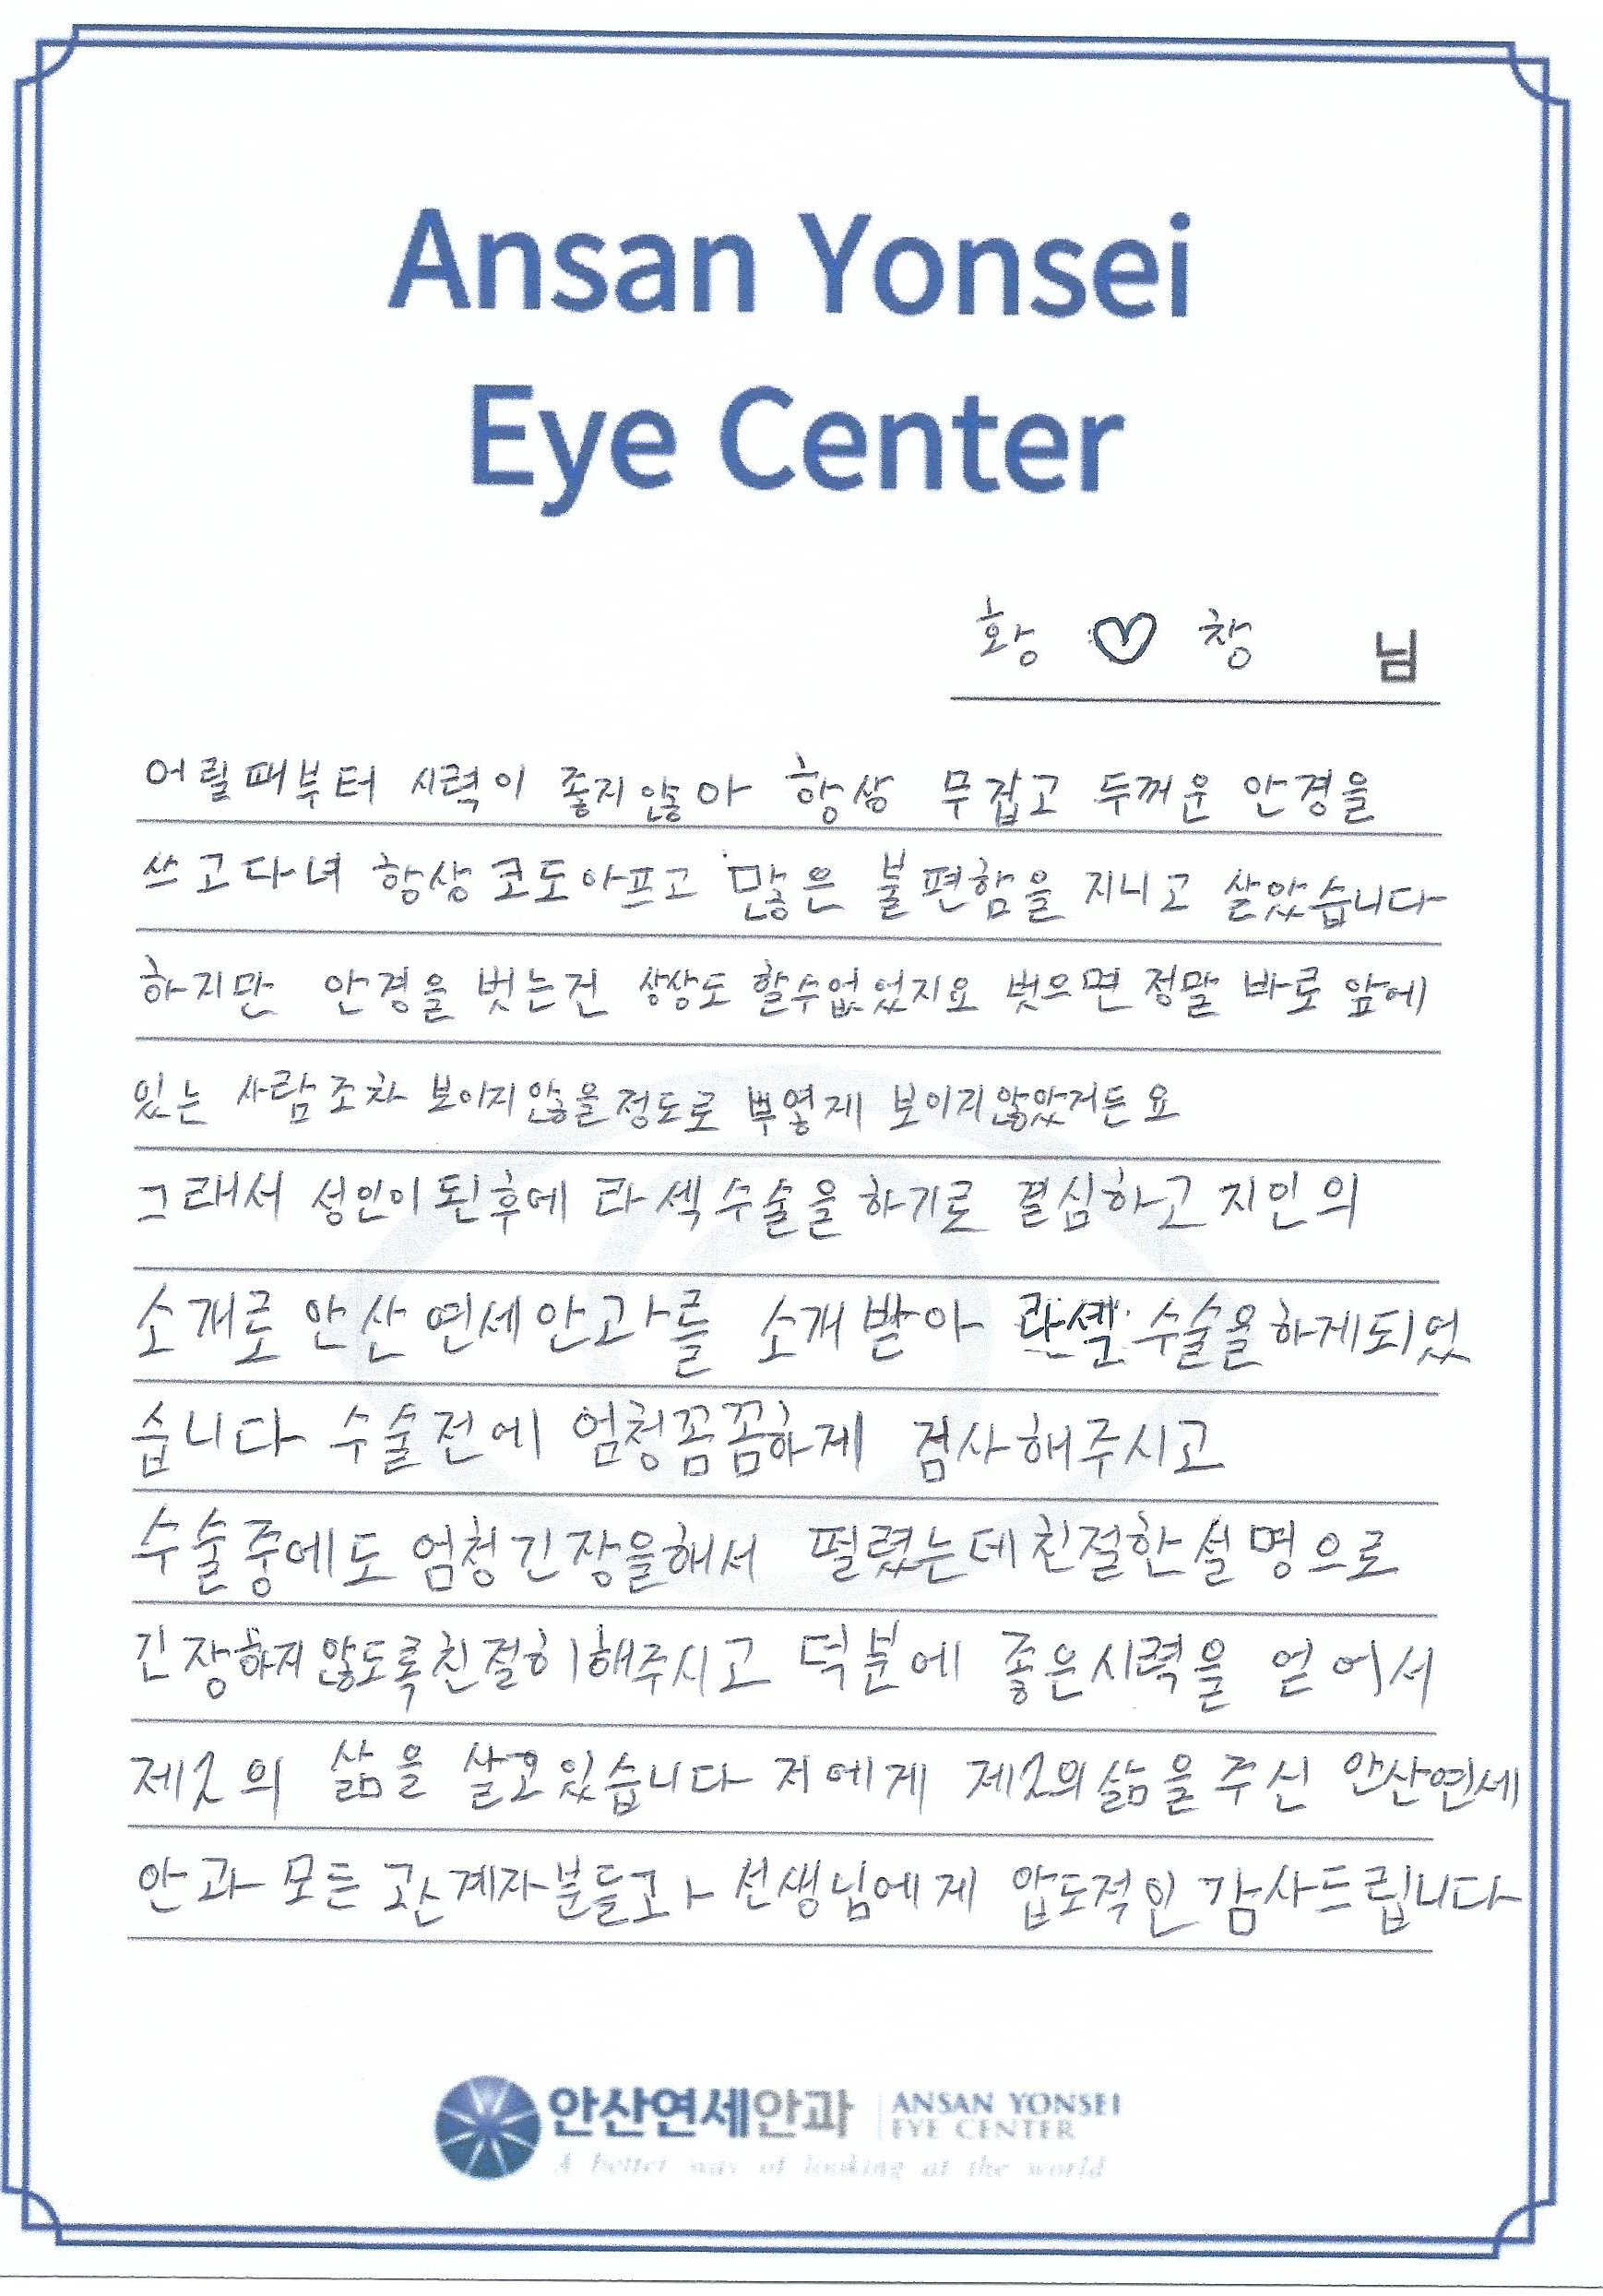 Ansan Yonsei
Eye Center
황 ♡ 창 님
어릴때부터 시력이 좋지않아 항상 무겁고 두꺼운 안경을
쓰고다녀 항상 코도아프고 많은 불편함을 지니고 살았습니다
하지만 안경을 벗는건 상상도 할수없었지요 벗으면 정말 바로 앞에
있는 사람조차 보이지않을정도로 뿌옇게 보이지않았거든요
그래서 성인이된후에 라섹수술을 하기로 결심하고 지인의
소개로 안산연세안과를 소개받아 라섹 수술을하게되었
습니다 수술전에 엄청꼼꼼하게 검사해주시고
수술중에도 엄청긴장을해서 떨렸는데친절한설명으로
긴장하지않도록친절히해주시고 덕분에 좋은시력을 얻어서
제2의 삶을 살고있습니다 저에게 제2의삶을주신 안산연세
안과모든 관계자분들과 선생님에게 압도적인감사드립니다
안산연세안과 ANSAN YONSEI
EYE CENTER
A better way of looking at the world